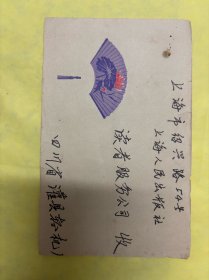 上海市绍兴路54号
上海人民出版社
读者服务公司 收
四川省灌县